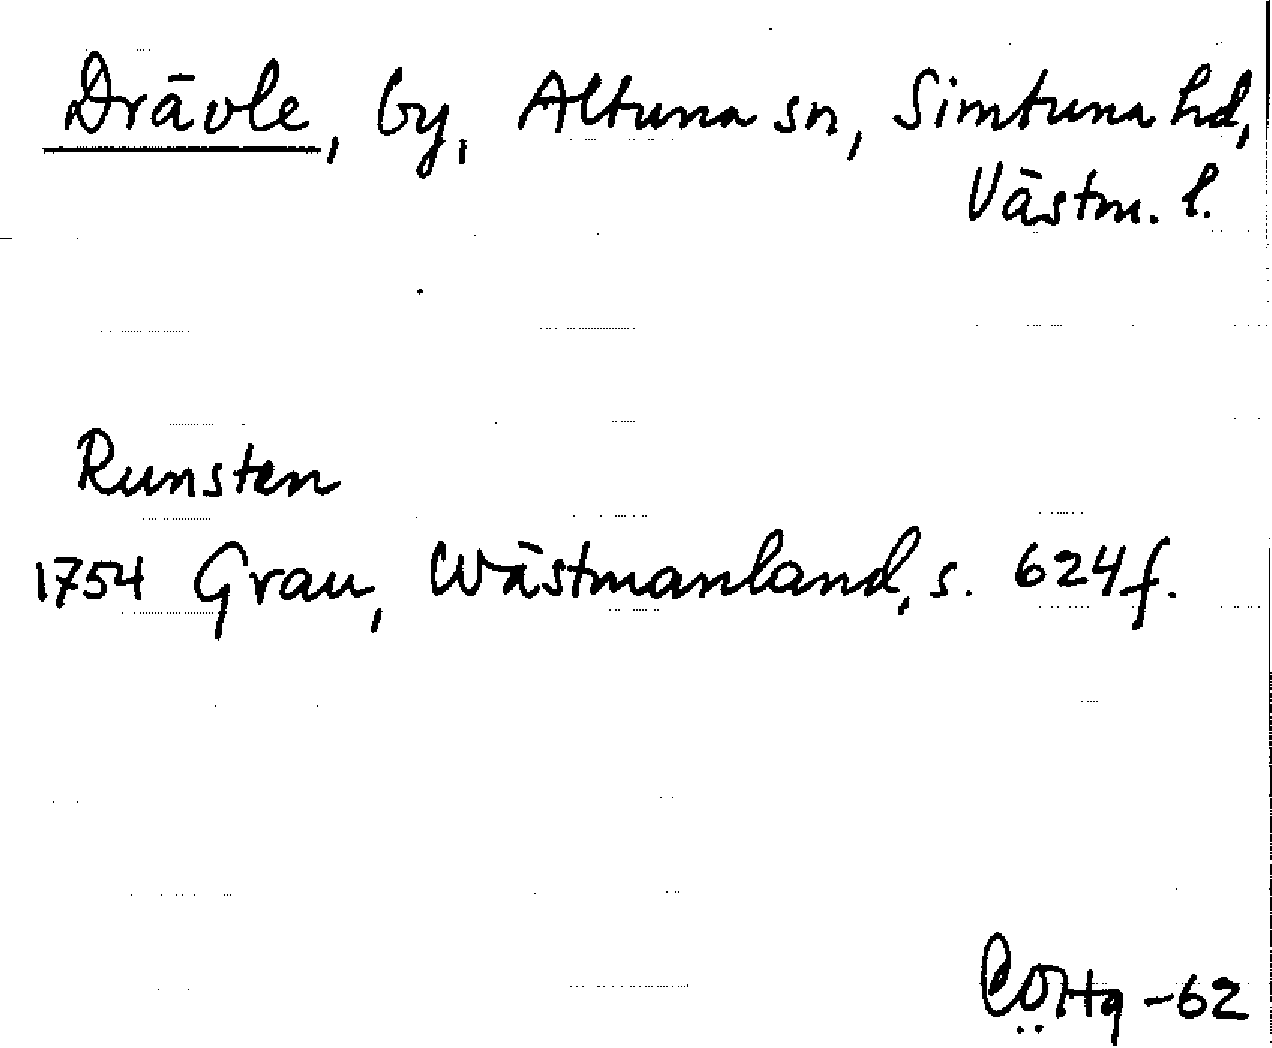 Drävle, by, Altuna sn, Simtuna hd,
Västm. l.
Runsten
1754 Grau, Wästmanland, s. 624f.
-62